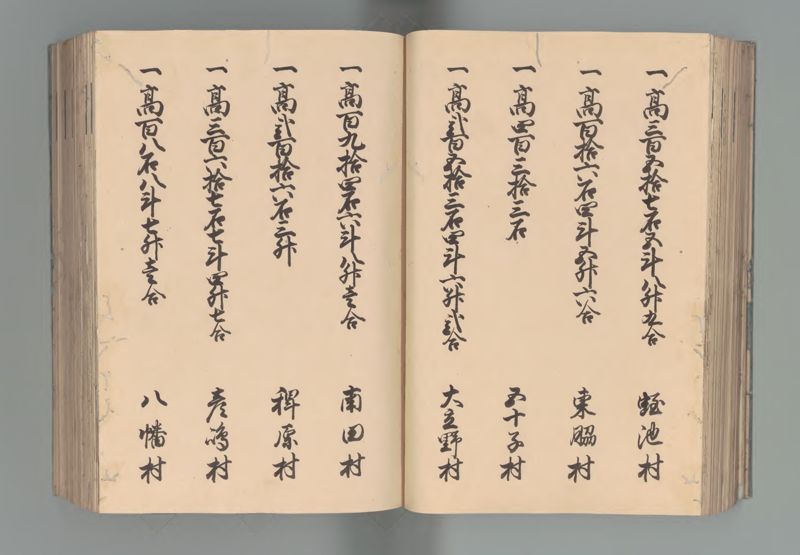 一 高三百五拾七石五斗八升五合 蛭池村
一 高百拾六石四斗五升六合 東脇村
一 高四百三拾三石 五十子村
一 高弐百五拾三石四斗六升弐合 大立野村
一 高百九拾四石六斗八升壱合 南田村
一 高弐百拾六石三升 稗原村
一 高三百六拾七石七斗四升七合 彦嶋村
一 高百八石八斗七升壱合 八幡村